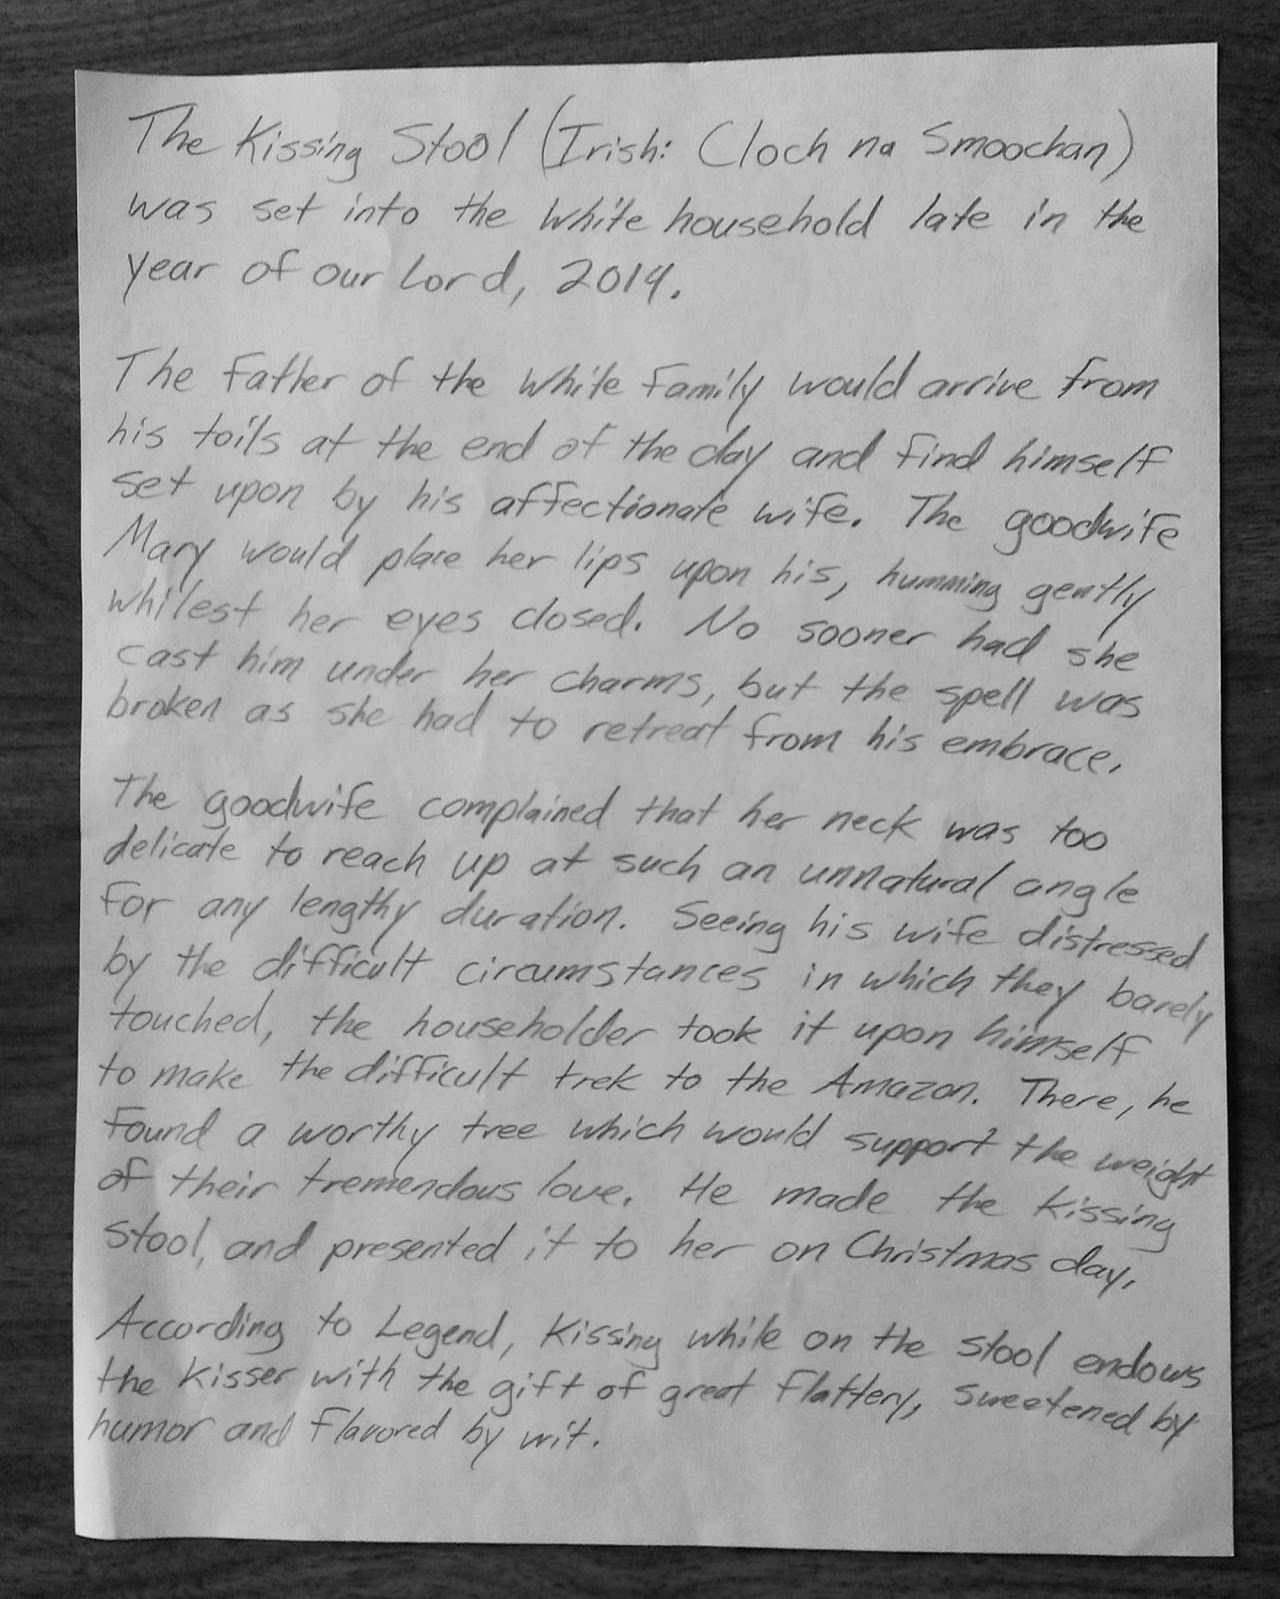 The Kissing Stool (Irish: Cloch na Smoochan)
was set into the White household late in the
year of our Lord, 2014.
The Father of the White Family would arrive from
his toils at the end of the day and find himself
set upon by his affectionate wife. The goodwife
Mary would place her lips upon his, humming gently
whilest her eyes closed. No sooner had she
cast him under her charms, but the spell was
broken as she had to retreat from his embrace.
The goodwife complained that her neck was too
delicate to reach up at such an unnatural angle
for any lengthy duration. Seeing his wife distressed
by the difficult circumstances in which they barely
touched, the householder took it upon himself
to make the difficult trek to the Amazon. There, he
found a worthy tree which would support the weight
of their tremendous love. He made the Kissing
Stool, and presented it to her on Christmas day.
According to Legend, Kissing while on the stool endows
the Kisser with the gift of great flattery, sweetened by
humor and flavored by wit.